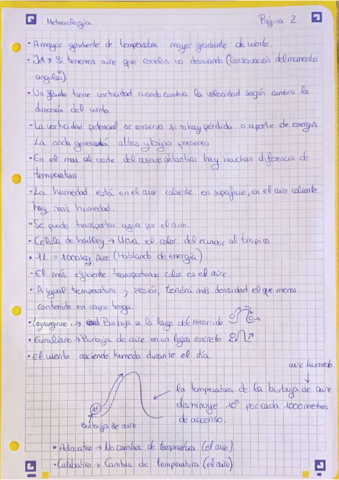 Meteorología Página 2
• A mayor gradiente de temperatura mayor gradiente de viento.
• Jet → Si tenemos aire que conlleva va desviando (Conservación del momento
angular)
• Un fluido tiene vorticidad cuando cambia la velocidad según cambia la
dirección del viento.
• La vorticidad potencial se conserva si no hay pérdida o aporte de energía
La onda generará altas y bajas presiones
• En el mar al oeste del oceano atlantico hay muchas diferencia de
temperatura
• La humedad está en el aire caliente en superficie, en el aire caliente
hay más humedad.
• Se puede transportar agua por el aire.
• Celula de hadley → lleva el calor del ecuador al tropico
• 1L = 1000kg aire (Hablando de energía)
• El más eficiente transportando calor es el aire.
• A igual temperatura y presión, tendrá más densidad el que menos
contenido en vapor tenga.
• → Burbuja a lo largo del recorrido
• Euleriano → Burbuja de aire en un lugar concreto
• El viento asciende humedo durante el día.
aire humedo
La temperatura de la burbuja de aire
disminuye 10º por cada 1000 metros
de ascenso.
Burbuja de aire
• → No cambia de temperatura (el aire)
• → Cambia de temperatura (el aire)